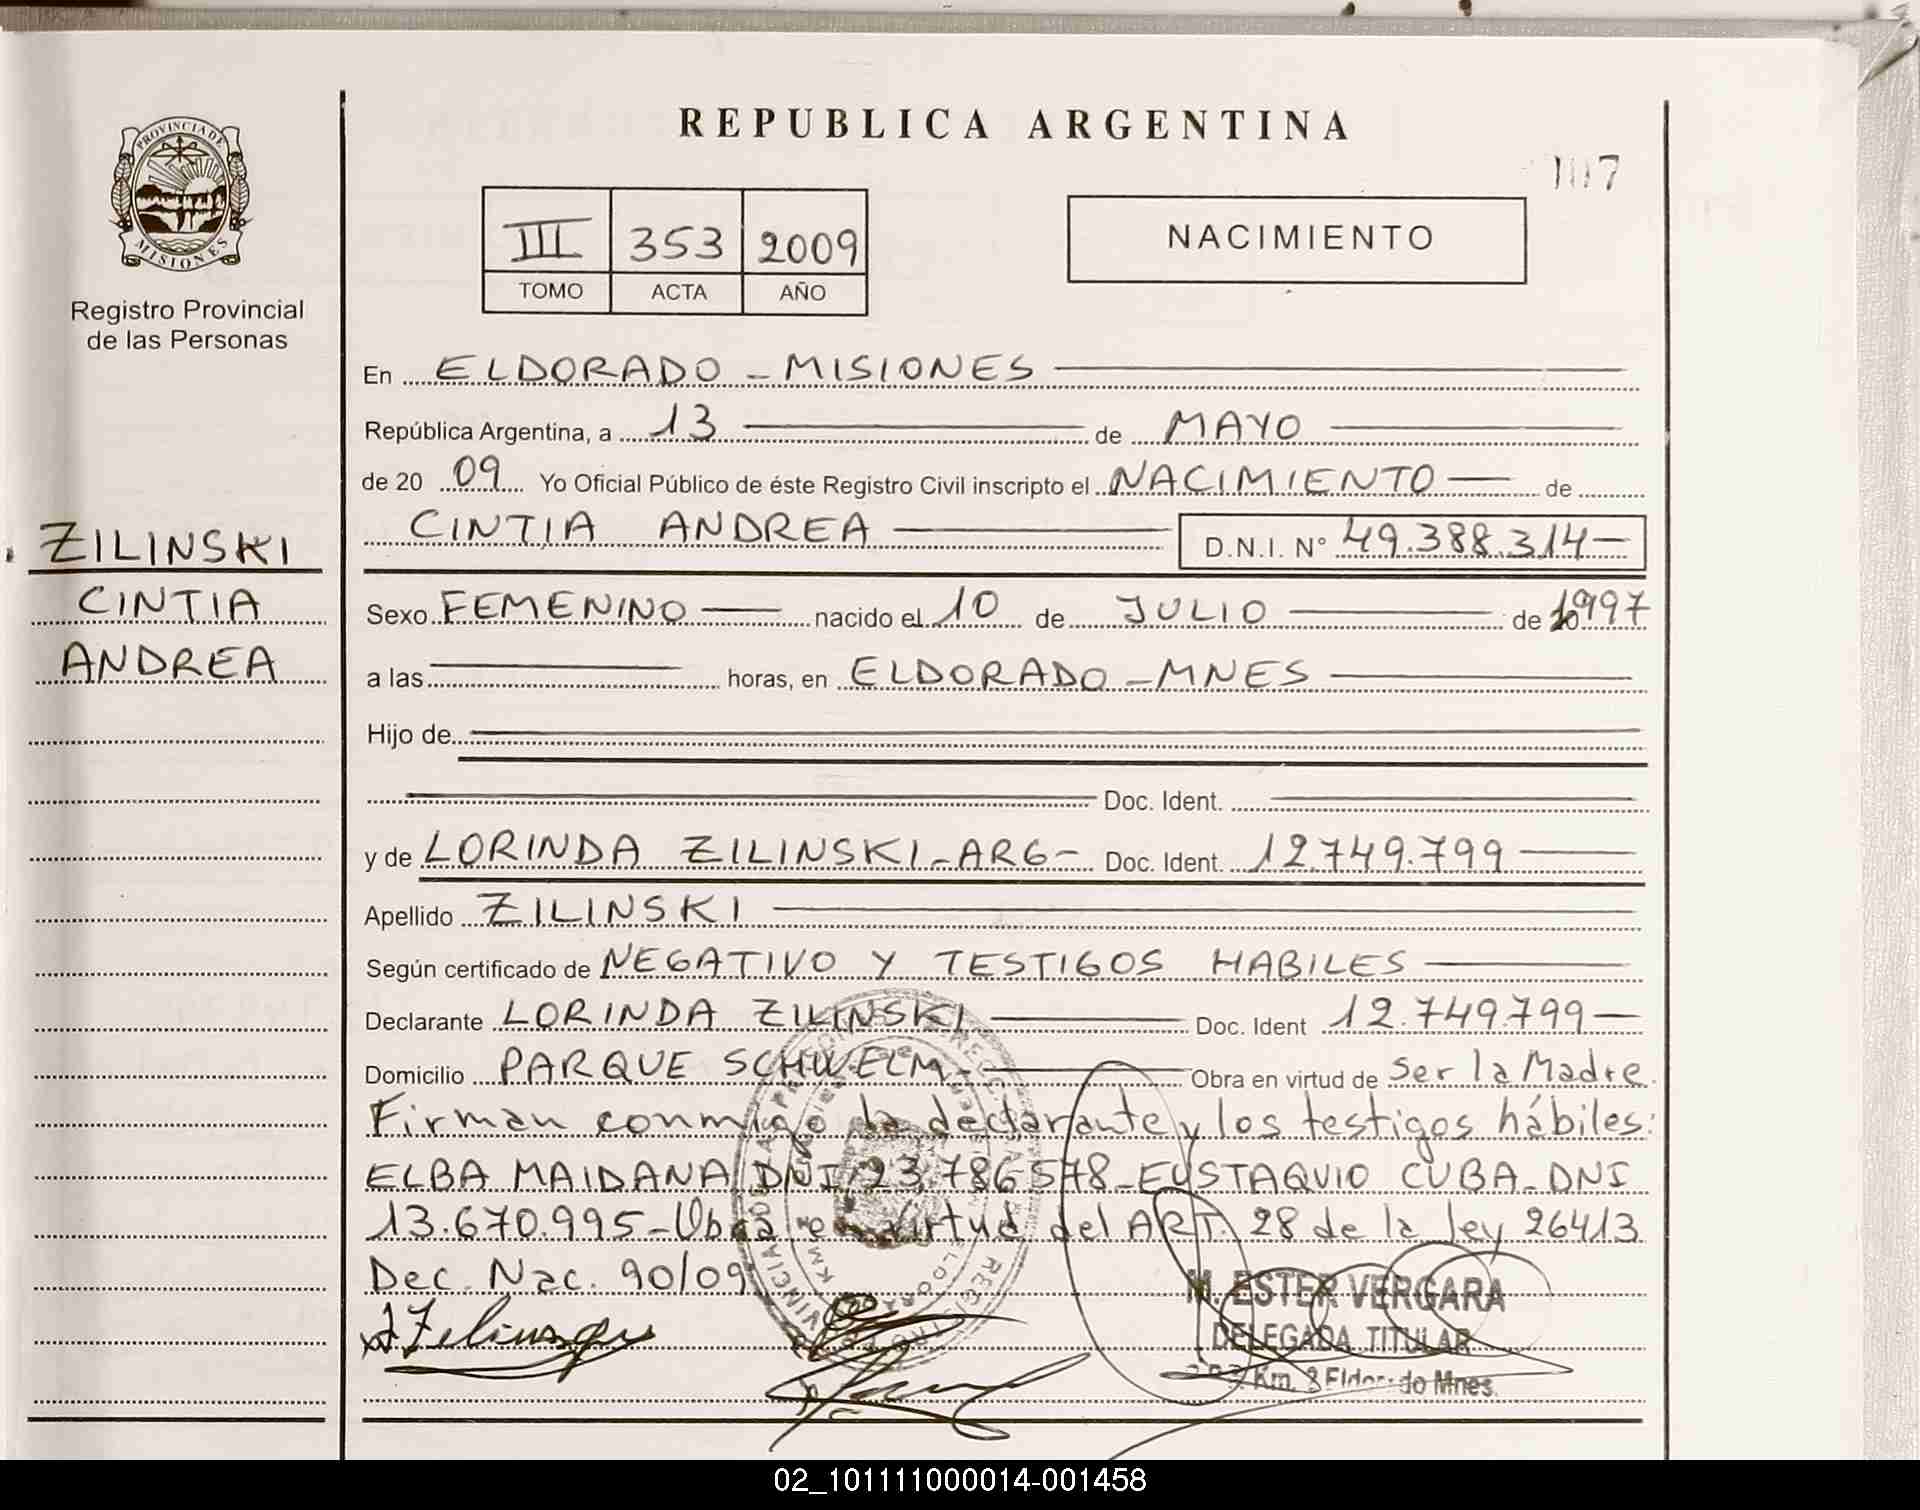 REPUBLICA ARGENTINA
107
PROVINCIA DE
MISIONES
Registro Provincial
de las Personas
III 353 2009
TOMO ACTA AÑO
NACIMIENTO
En ELDORADO - MISIONES
República Argentina, a 13 de MAYO
de 20 09 Yo Oficial Público de éste Registro Civil inscripto el NACIMIENTO de
CINTIA ANDREA D.N.I. N° 49.388.314
ZILINSKI
CINTIA
ANDREA
Sexo FEMENINO nacido el 10 de JULIO de 1997
a las horas, en ELDORADO - MNES
Hijo de
Doc. Ident.
y de LORINDA ZILINSKI - ARG - Doc. Ident. 12.749.799
Apellido ZILINSKI
Según certificado de NEGATIVO Y TESTIGOS HABILES
Declarante LORINDA ZILINSKI Doc. Ident 12.749.799
Domicilio PARQUE SCHWELM - Obra en virtud de ser la Madre.
Firman conmigo la declarante y los testigos hábiles:
ELBA MAIDANA DNI 23.786.578 - EUSTAQUIO CUBA - DNI
13.670.995 - Obra en virtud del ART. 28 de la ley 26413
Dec. Nac. 90/09
M. ESTER VERGARA
DELEGADA TITULAR
Km. 8 Eldorado Mnes.
02_101111000014-001458